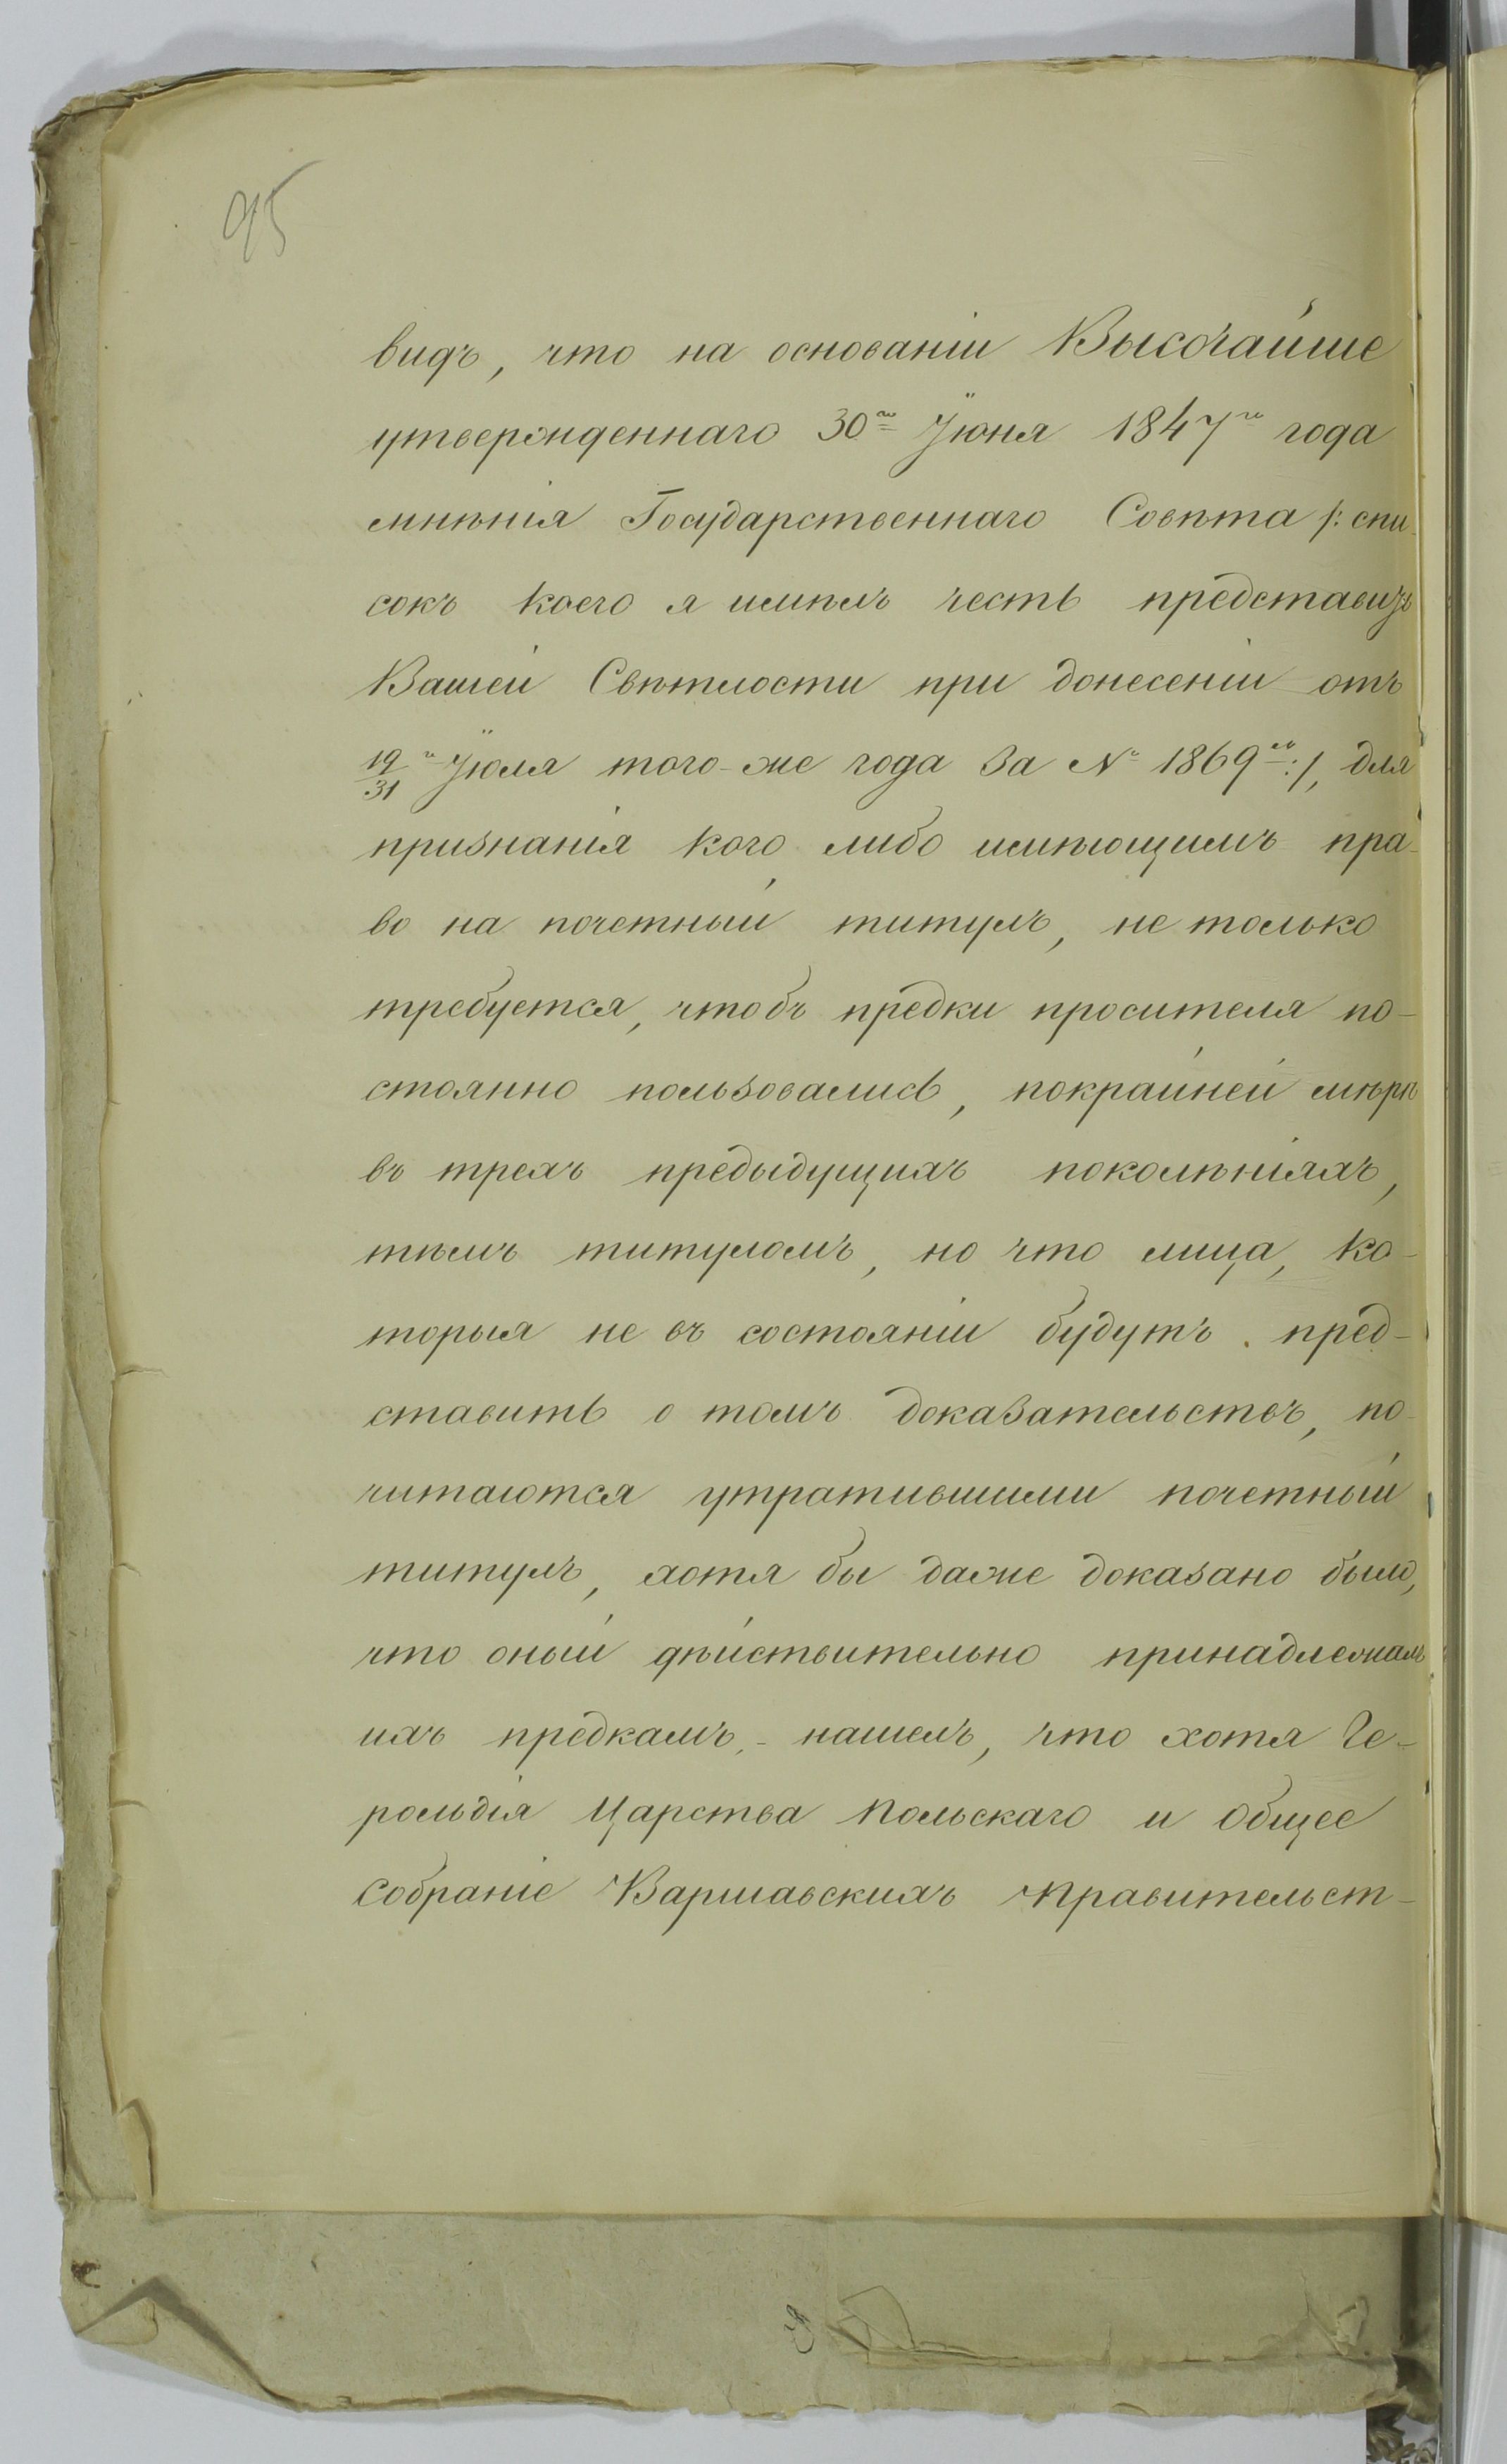 95
видъ, что на основаніи Высочайше
утвержденнаго 30го Іюня 1847го года
мнѣнія Государственнаго Совѣта /: спи-
сокъ коего я имѣлъ честь представить
Вашей Свѣтлости при донесеніи отъ
19/31го Іюля того-же года за № 1869мъ :/, для
признанія кого либо имѣющимъ пра-
во на почетный титулъ, не только
требуется, чтобъ предки просителя по-
стоянно пользовались, покрайней мѣрѣ
въ трехъ предыдущихъ поколѣніяхъ,
тѣмъ титуломъ, но что лица, ко-
торыя не въ состояніи будутъ пред-
ставить о томъ доказательствъ, по-
читаются утратившими почетный
титулъ, хотя бы даже доказано было,
что оный дѣйствительно принадлежалъ
ихъ предкамъ, - нашелъ, что хотя Ге-
рольдія Царства Польскаго и Общее
Собраніе Варшавскихъ Правительст-